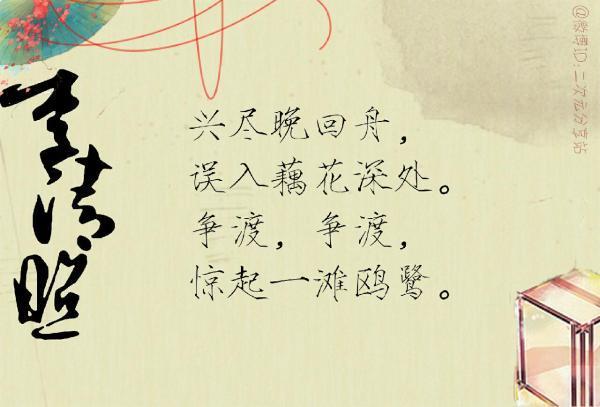 李清照
兴尽晚回舟，
误入藕花深处。
争渡，争渡，
惊起一滩鸥鹭。
@微博ID:二次元分享站